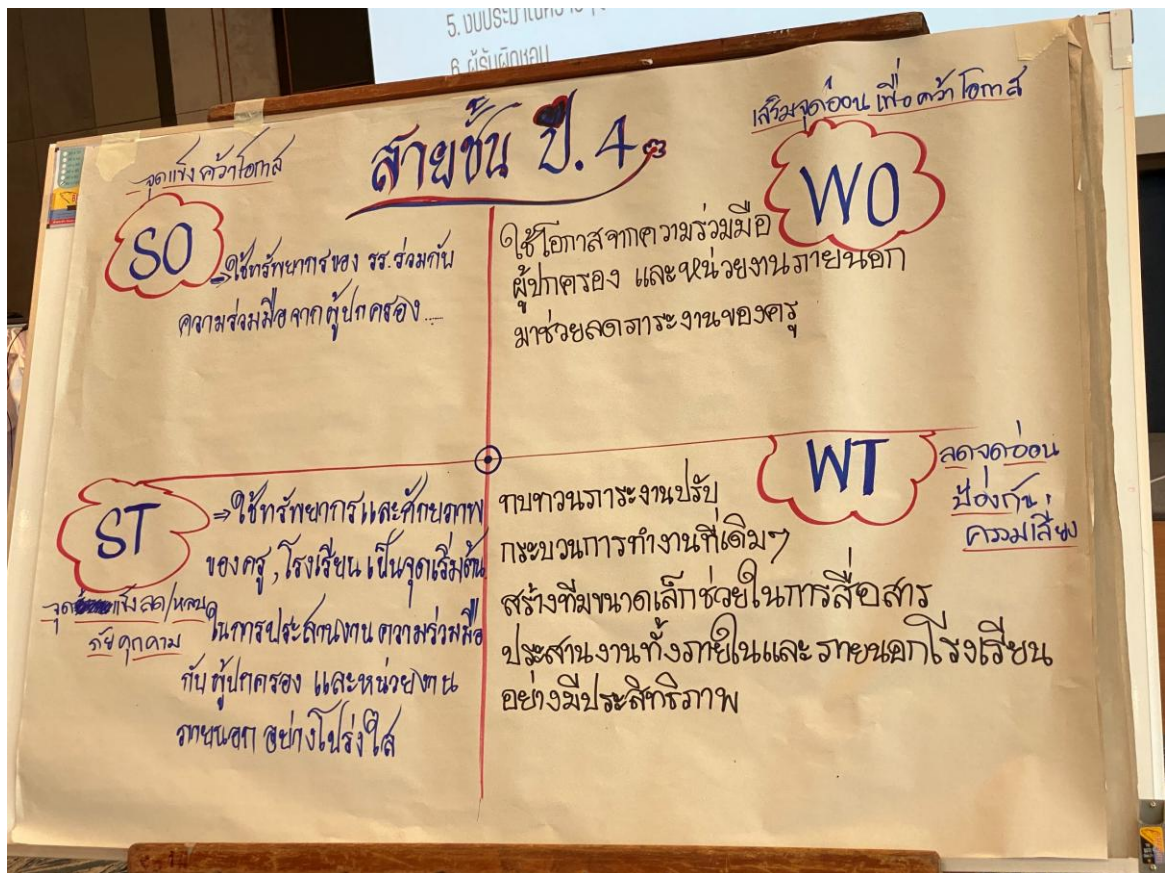 5. งบประมาณ
6. ผู้รับผิดชอบ
สายชั้น ปี.4
จุดแข็ง คว้าโอกาส
SO
⇒ใช้ทรัพยากรของ รร.ร่วมกับ
ความร่วมมือจากผู้ปกครอง...
เสริมจุดอ่อน เพื่อคว้าโอกาส
WO
ใช้โอกาสจากความร่วมมือ
ผู้ปกครอง และหน่วยงานภายนอก
มาช่วยลดภาระงานของครู
ST
จุดแข็ง ลด/หลบ
ภัยคุกคาม
⇒ใช้ทรัพยากรและศักยภาพ
ของครู,โรงเรียน เป็นจุดเริ่มต้น
ในการประสานงาน ความร่วมมือ
กับผู้ปกครอง และหน่วยงาน
ภายนอก อย่างโปร่งใส
WT
ลดจุดอ่อน
ป้องกัน
ความเสี่ยง
ทบทวนภาระงานปรับ
กระบวนการทำงานที่เดิมๆ
สร้างทีมขนาดเล็กช่วยในการสื่อสาร
ประสานงานทั้งภายในและภายนอกโรงเรียน
อย่างมีประสิทธิภาพ